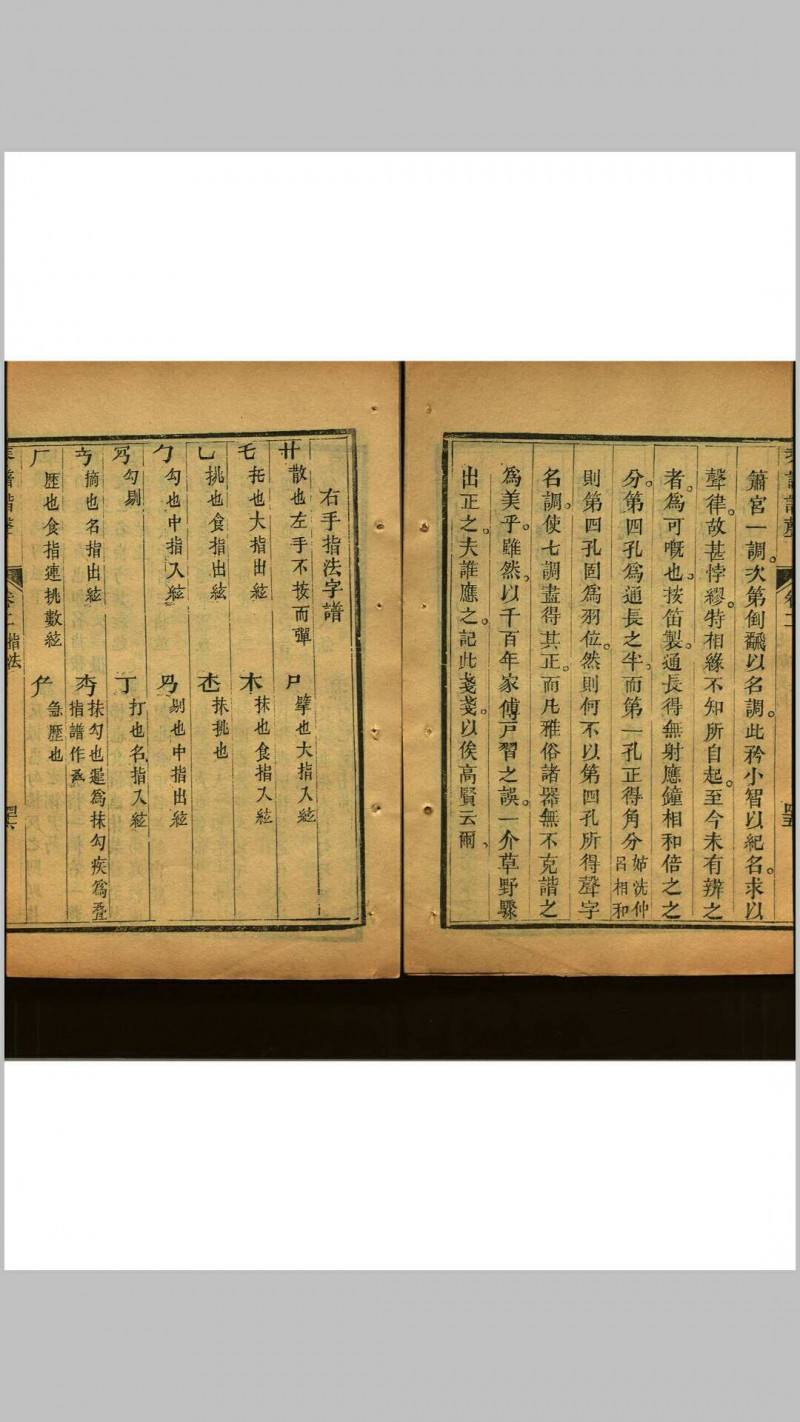 簫宮一調。次第倒飜以名調。此矜小智以紀名。求以
聲律。故甚悖繆。特相緣不知所自起。至今未有辨之
者。爲可嘅也。按笛製。通長得無射應鐘相和倍之之
分。第四孔爲通長之半。而第一孔正得角分姊洗仲呂相和
則第四孔固爲羽位。然則何不以第四孔所得聲字
名調。使七調盡得其正。而凡雅俗諸器無不克諧之
爲美乎。雖然。以千百年家傳戸習之誤。一介草野驟
出正之。夫誰應之。記此戔戔。以俟高賢云爾。
右手指法字譜
散也左手不按而彈
尸 擘也大指入絃
乇 托也大指出絃
木 抹也食指入絃
乚 挑也食指出絃
抹挑也
勹 勾也中指入絃
剔也中指出絃
勾剔
丁 打也名指入絃
摘也名指出絃
抹勾也遲爲抹勾疾爲
指譜作
厂 歷也食指連挑數絃
急歷也
卷二 指法